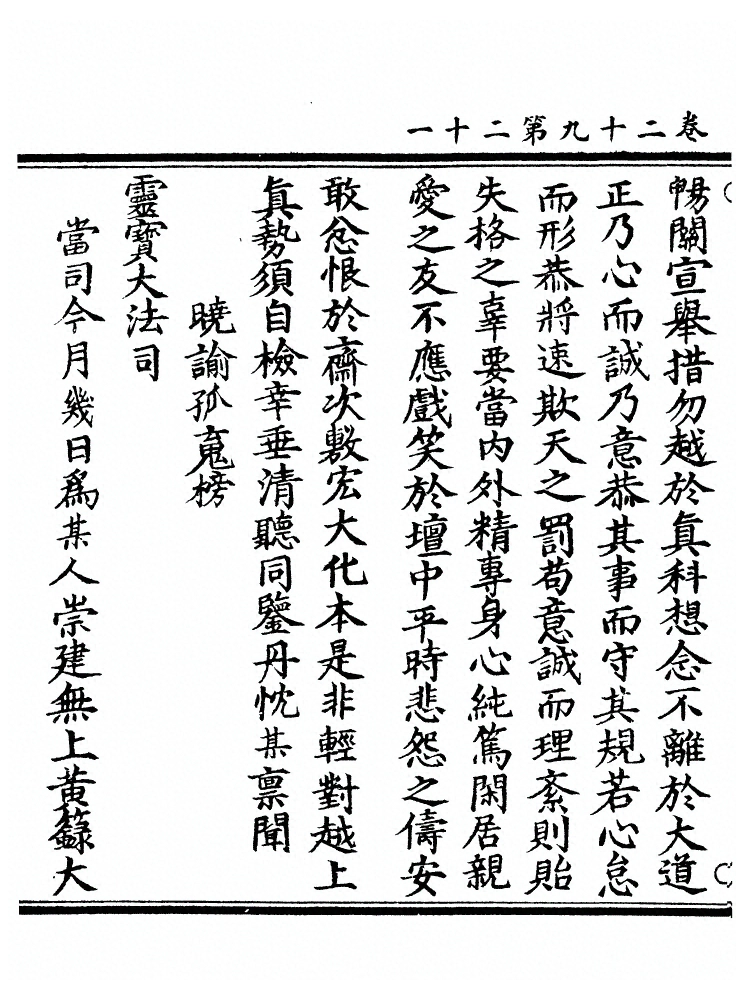 卷二十九第二十一
暢關宣舉措勿越於眞科想念不離於大道
正乃心而誠乃意恭其事而守其規若心怠
而形恭將速欺天之罰苟意誠而理紊則貽
失格之辜要當內外精專身心純篤閑居親
愛之友不應戲笑於壇中平時悲怨之儔安
敢忿恨於齋次敷宏大化本是非輕對越上
眞勢須自檢幸垂清聽同鑒丹忱某禀聞
曉諭孤䰟榜
靈寶大法司
當司今月幾日爲某人崇建無上黃籙大